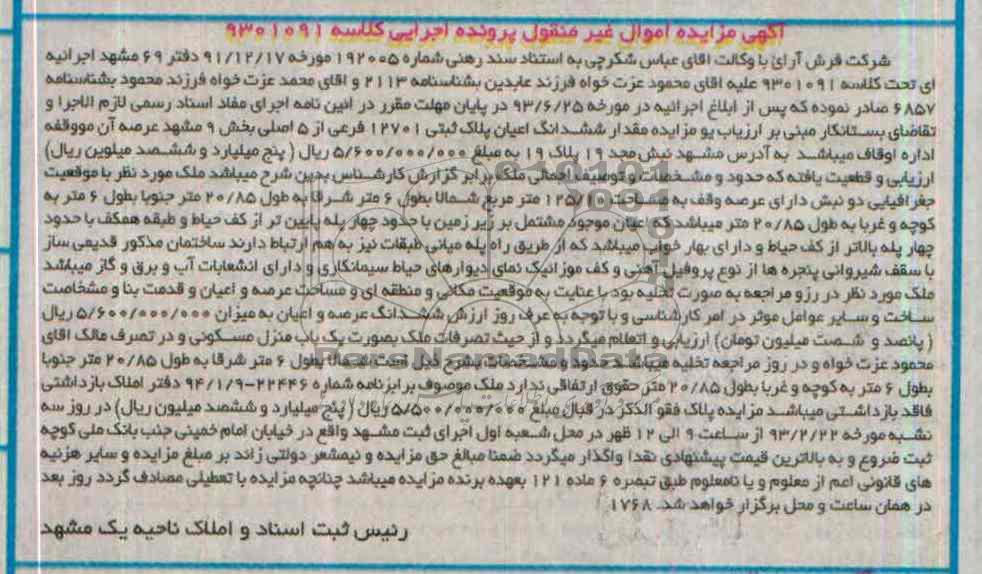 آگهی مزایده اموال غیر منقول پرونده اجرایی کلاسه ۹۳۰۱۰۹۱
شرکت فرش آرای با وکالت اقای عباس شکرچی به استناد سند رهنی شماره ۱۹۲۰۰۵ مورخه ۹۱/۱۲/۱۷ دفتر ۶۹ مشهد اجرائیه
ای تحت کلاسه ۹۳۰۱۰۹۱ علیه اقای محمود عزت خواه فرزند عابدین بشناسنامه ۲۱۱۳ و اقای محمد عزت خواه فرزند محمود بشناسنامه
۶۸۵۷ صادر نموده که پس از ابلاغ اجرائیه در مورخه ۹۳/۶/۲۵ در پایان مهلت مقرر در ائین نامه اجرای مفاد اسناد رسمی لازم الاجرا و
تقاضای بستانکار مبنی بر ارزیاب یو مزایده مقدار ششدانگ اعیان پلاک ثبتی ۱۲۷۰۱ فرعی از ۵ اصلی بخش ۹ مشهد عرصه آن مووقفه
اداره اوقاف میباشد به آدرس مشهد نبش مجد ۱۹ پلاک ۱۹ به مبلغ ۵/۶۰۰/۰۰۰/۰۰۰ ریال ( پنج میلیارد و ششصد میلوین ریال)
ارزیابی و قطعیت یافته که حدود و مشخصات و توصیف اجمالی ملک برابر گزارش کارشناس بدین شرح میباشد ملک مورد نظر با موقعیت
جغرافیایی دو نبش دارای عرصه وقف به مساحت ۱۲۵/۱۰ متر مربع شمالا بطول ۶ متر شرقا به طول ۲۰/۸۵ متر جنوبا بطول ۶ متر به
کوچه و غربا به طول ۲۰/۸۵ متر میباشد که اعیان موجود مشتمل بر زیر زمین با حدود چهار پله پایین تر از کف حیاط و طبقه همکف با حدود
چهار پله بالاتر از کف حیاط و دارای بهار خواب میباشد که از طریق راه پله میانی طبقات نیز به هم ارتباط دارند ساختمان مذکور قدیمی ساز
با سقف شیروانی پنجره ها از نوع پروفیل آهنی و کف موزائیک نمای دیوارهای حیاط سیمانکاری و دارای انشعابات آب و برق و گاز میباشد
ملک مورد نظر در رزو مراجعه به صورت تخلیه بود با عنایت به موقعیت مکانی و منطقه ای و مساحت عرصه و اعیان و قدمت بنا و مشخصات
ساخت و سایر عوامل موثر در امر کارشناسی و با توجه به عرف روز ارزش ششدانگ عرصه و اعیان به میزان ۵/۶۰۰/۰۰۰/۰۰۰ ریال
( پانصد و شصت میلیون تومان) ارزیابی و اتعلام میگردد و از حیث تصرفات ملک بصورت یک باب منزل مسکونی و در تصرف مالک اقای
محمود عزت خواه و در روز مراجعه تخلیه میباشد حدود و مشخصات بشرح ذیل است شمالا بطول ۶ متر شرقا به طول ۲۰/۸۵ متر جنوبا
بطول ۶ متر به کوچه و غربا بطول ۲۰/۸۵ متر حقوق ارتفاقی ندارد ملک موصوف برابر نامه شماره ۲۲۴۴۶-۹۴/۱/۹ دفتر املاک بازداشتی
فاقد بازداشتی میباشد مزایده پلاک فقو الذکر در قبال مبلغ ۵/۵۰۰/۰۰۰/۰۰۰ ریال ( پنج میلیارد و ششصد میلیون ریال) در روز سه
نشبه مورخه ۹۳/۲/۲۲ از ساعت ۹ الی ۱۲ ظهر در محل شعبه اول اجرای ثبت مشهد واقع در خیابان امام خمینی جنب بانک ملی کوچه
ثبت ضروع و به بالاترین قیمت پیشنهادی نقدا واگذار میگردد ضمنا مبالغ حق مزایده و نیمشعر دولتی زائد بر مبلغ مزایده و سایر هزنیه
های قانونی اعم از معلوم و یا نامعلوم طبق تبصره ۶ ماده ۱۲۱ بعهده برنده مزایده میباشد چنانچه مزایده با تعطیلی مصادف گردد روز بعد
در همان ساعت و محل برگزار خواهد شد. ۱۷۶۸
رئیس ثبت اسناد و املاک ناحیه یک مشهد